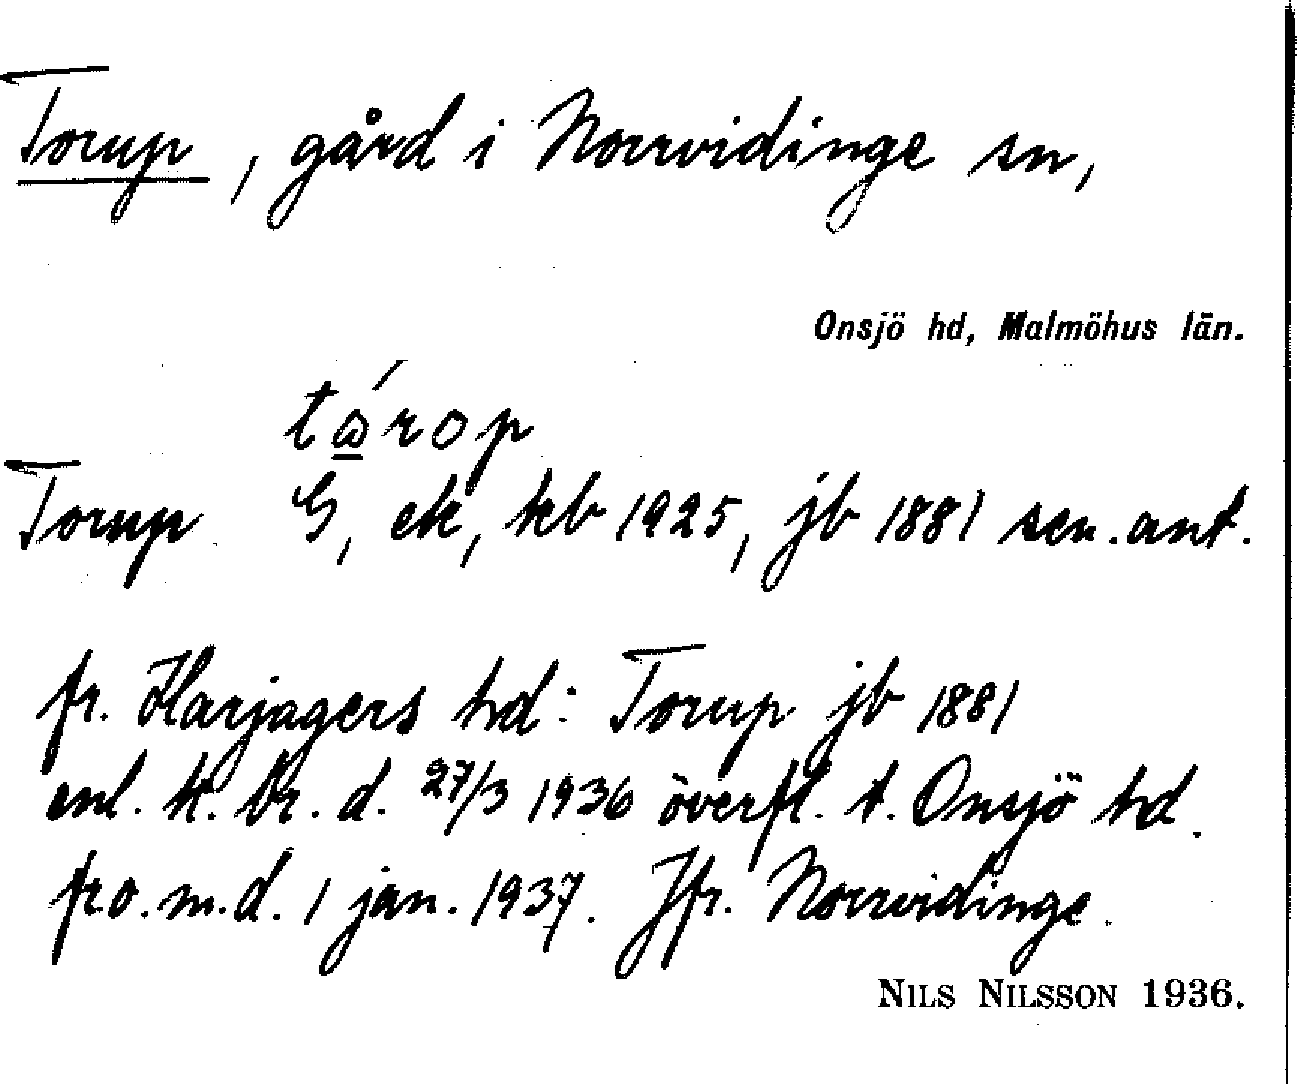 Torup, gård i Norrvidinge sn,
Onsjö hd, Malmöhus län.
Torup G, ek, kb 1925, jb 1881 sen. ant.
fr. Harjagers hd: Torup jb 1881
enl. K. Br. d. 27/3 1936 överfl. t. Onsjö hd.
fr o. m. d. 1 jan. 1937. Jfr. Norrvidinge.
NILS NILSSON 1936.